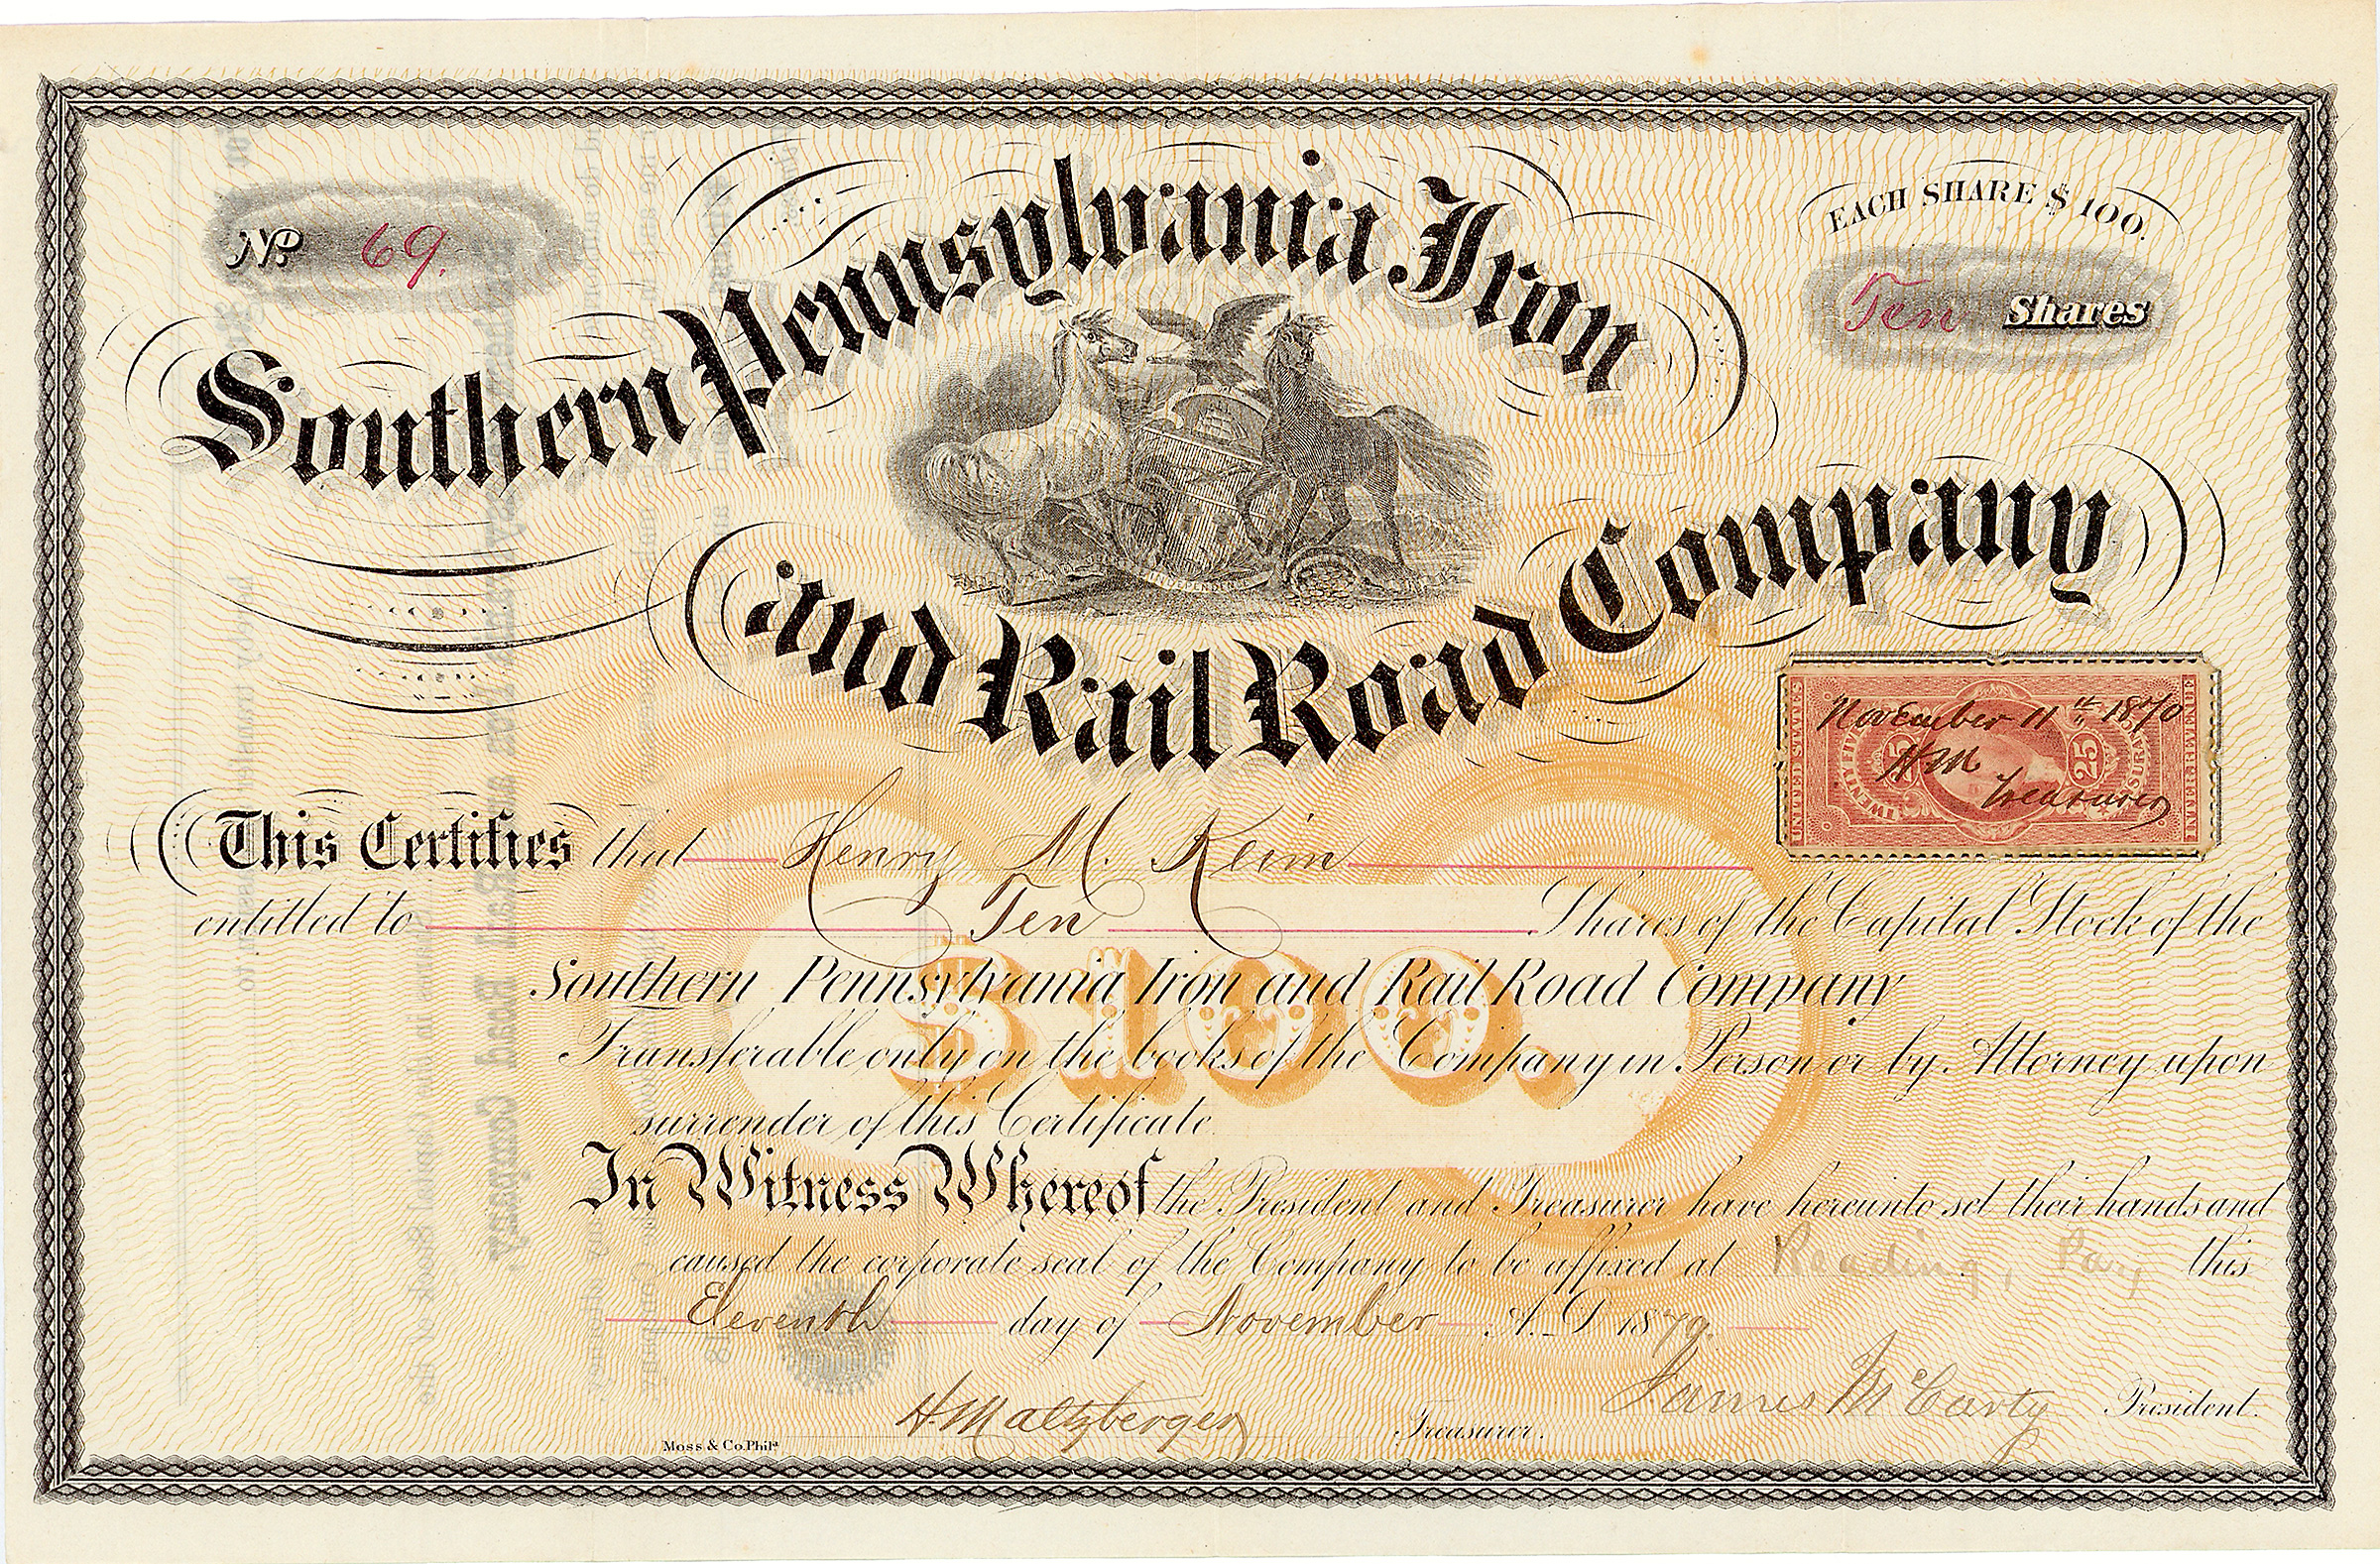 Nº 69.
EACH SHARE $100.
Ten Shares
Southern Pennsylvania Iron
and Rail Road Company
INDEPENDENCE
UNITED STATES
INTER. REVENUE
TWENTY FIVE
25
25
November 11th 1870
HM
Treasurer
This Certifies that Henry M. Keim
entitled to Ten Shares of the Capital Stock of the
$100.
Southern Pennsylvania Iron and Rail Road Company
Transferable only on the books of the Company in Person or by Attorney upon
surrender of this Certificate.
In Witness Whereof the President and Treasurer have hereunto set their hands and
caused the corporate seal of the Company to be affixed at Reading, Pa, this
Eleventh day of November A.D 1870.
H Maltzberger Treasurer.
James McCarty President.
Moss & Co. Phila